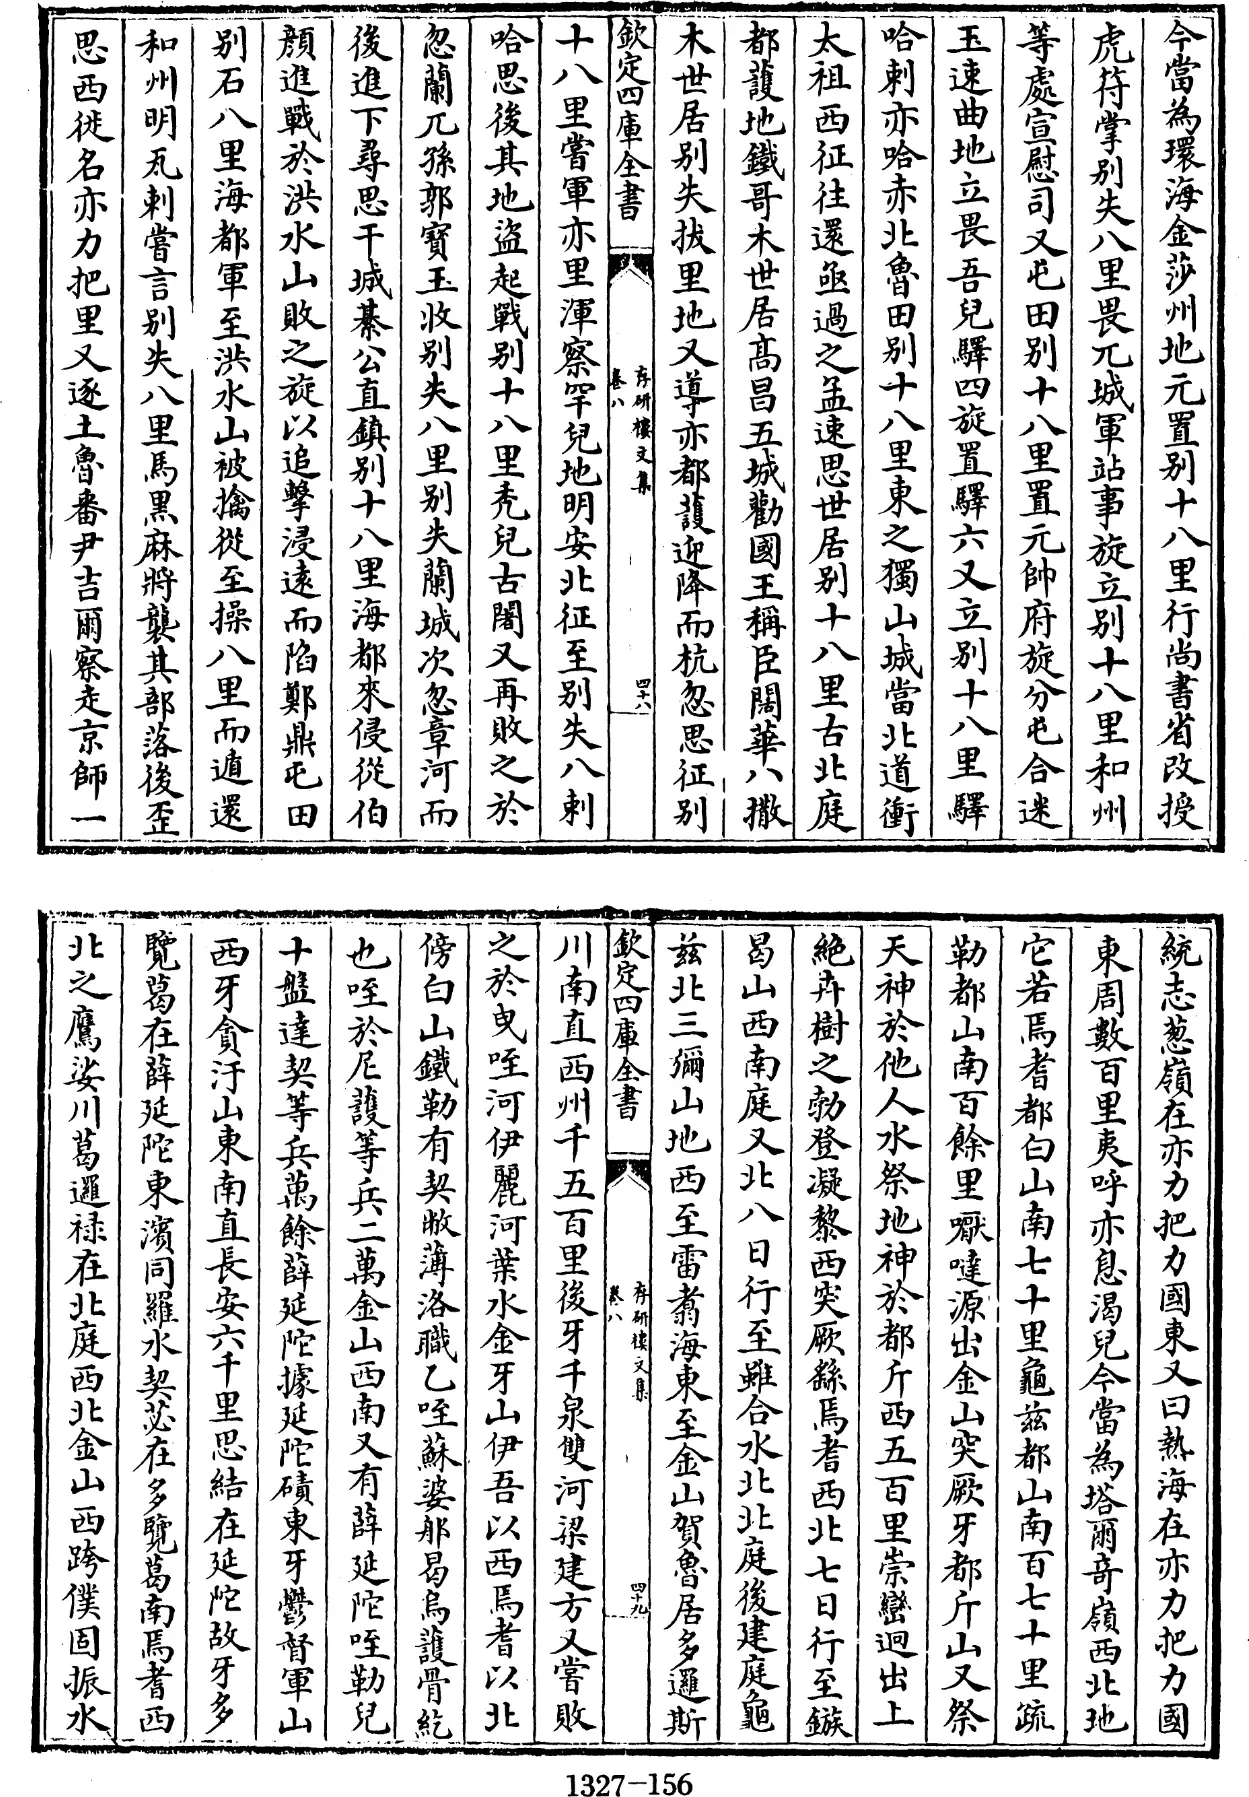 今當為環海金莎州地元置别十八里行尚書省改授
虎符掌别失八里畏兀城軍站事旋立别十八里和州
等處宣慰司又屯田别十八里置元帥府旋分屯合迷
玉速曲地立畏吾兒驛四旋置驛六又立别十八里驛
哈剌亦哈赤北魯田别十八里東之獨山城當北道衝
太祖西征往還亟過之孟速思世居别十八里古北庭
都䕶地鐵哥木世居髙昌五城勸國王稱臣闊華八撒
木世居别失拔里地又導亦都䕶迎降而杭忽思征别
欽定四庫全書
存研樓文集
卷八
四十八
十八里嘗軍亦里渾察罕兒地明安北征至别失八剌
哈思後其地盜起戰别十八里秃兒古闍又再敗之於
忽蘭兀孫郭寳玉收别失八里别失蘭城次忽章河而
後進下尋思干城綦公直鎮别十八里海都來侵從伯
顔進戰於洪水山敗之旋以追擊浸遠而陷鄭鼎屯田
别石八里海都軍至洪水山被擒從至操八里而遁還
和州明瓦剌嘗言别失八里馬黒麻將襲其部落後歪
思西徙名亦力把里又逐土魯番尹吉爾察走京師一
統志葱嶺在亦力把力國東又曰熱海在亦力把力國
東周數百里夷呼亦息渴兒今當為塔爾竒嶺西北地
它若焉耆都白山南七十里龜兹都山南百七十里疏
勒都山南百餘里嚈噠源出金山突厥牙都斤山又祭
天神於他人水祭地神於都斤西五百里崇巒迥出上
絶卉樹之勃登凝黎西突厥繇焉耆西北七日行至鏃
曷山西南庭又北八日行至雖合水北北庭後建庭龜
兹北三彌山地西至雷翥海東至金山賀魯居多邏斯
欽定四庫全書
存研樓文集
卷八
四十九
川南直西州千五百里後牙千泉雙河梁建方又嘗敗
之於曳咥河伊麗河葉水金牙山伊吾以西焉耆以北
傍白山鐵勒有契敝薄洛職乙咥蘇婆那曷烏䕶骨紇
也咥於尼䕶等兵二萬金山西南又有薛延陀咥勒兒
十盤達契等兵萬餘薛延陀據延陀磧東牙鬱督軍山
西牙貪汙山東南直長安六千里思結在延陀故牙多
覽葛在薛延陀東濱同羅水契苾在多覽葛南焉耆西
北之鷹娑川葛邏禄在北庭西北金山西跨僕固振水
1327-156